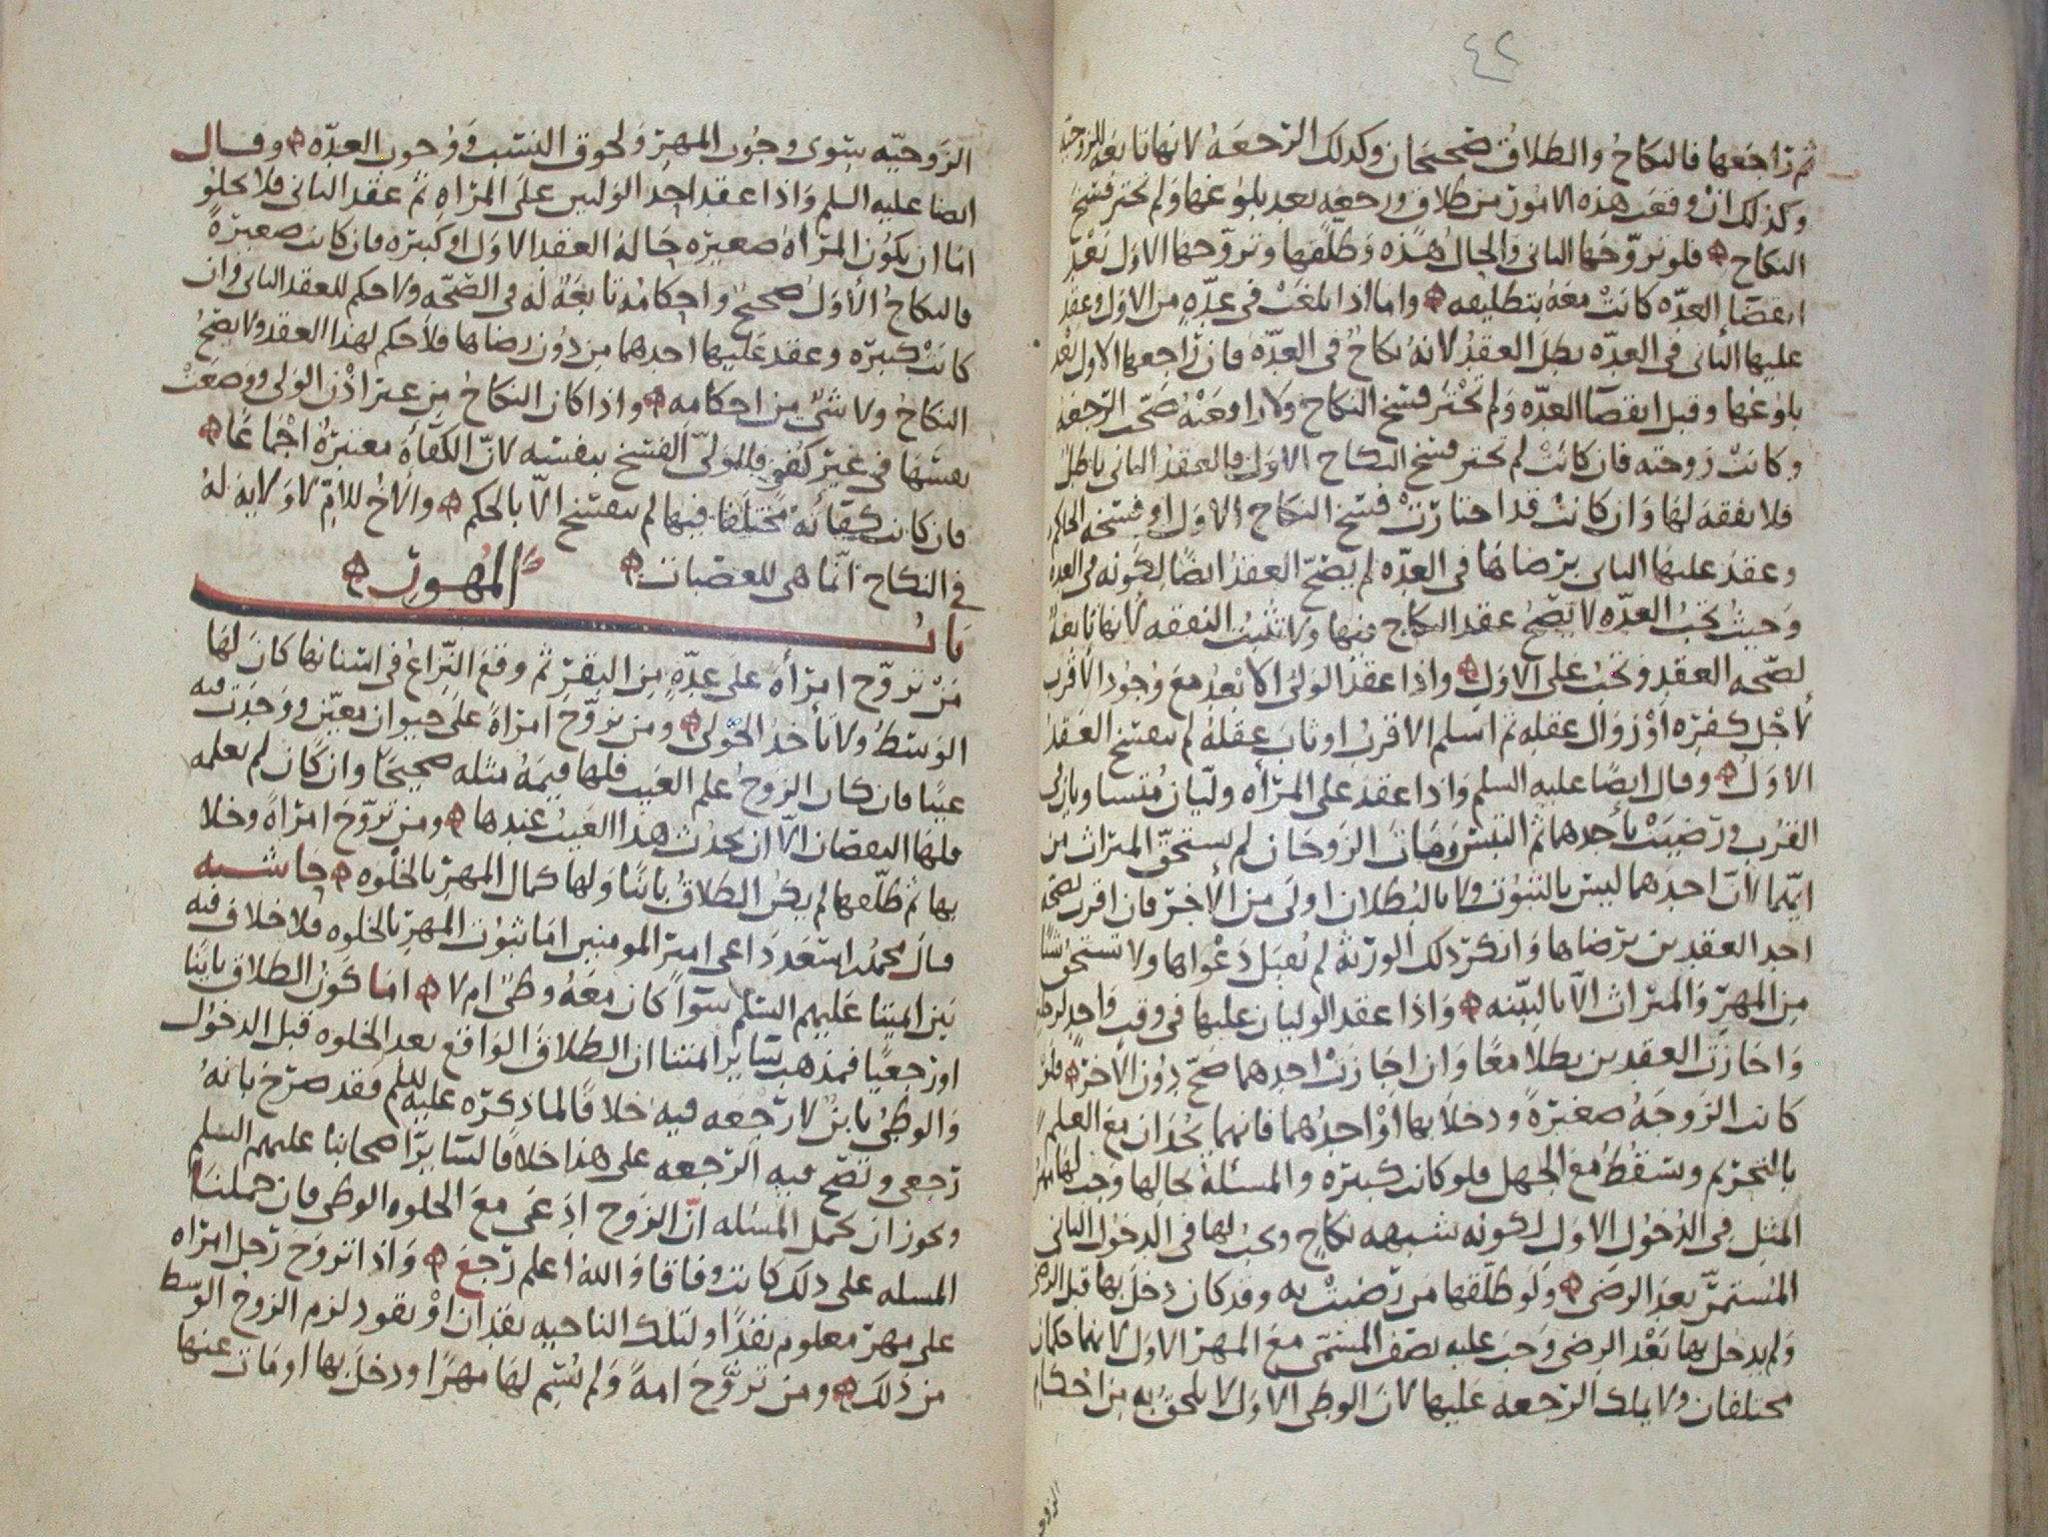 ٤٢
ثم راجعها فالنكاح والطلاق صحيحان وكذلك الرجعه لانها تابعه للزوجيه
وكذلك ان وقعت هذه الامور من طلاق ورجعه بعد بلوغها ولم تختر فسخ
النكاح فلو تزوّجها الثاني والحال هذه وطلقها وتزوّجها الاول بعد
انقضا العدّه كانت معه بتطليقه واما اذا بلغت في عدّه من الاول وعقد
عليها الثاني في العدّه بطل العقد لانه نكاح في العدّه فان راجعها الاول بعد
بلوغها وقبل انقضا العدّه ولم تختر فسخ النكاح ولا رافعته صحّت الرجعه
وكانت زوجته فان كانت لم تختر فسخ النكاح الاول فالعقد الثاني باطل
فلا نفقه لها وان كانت قد اختارت فسخ النكاح الاول او فسخه الحاكم
وعقد عليها الثاني برضاها في العدّه لم يصحّ العقد ايضا لكونه في العده
وحيث تجب العدّه لا يصح عقد النكاح فيها ولا تثبت النفقه لانها تابعه
لصحّه العقد وتجب على الاول واذا عقد الولي الابعد مع وجود الاقرب
لاجل كفره او زوال عقله ثم اسلم الاقرب او ثاب عقله لم ينفسخ العقد
الاول وقال ايضا عليه السلم واذا عقد على المرأه وليّان متساويان في
القرب ورضيت باحدهما ثم التبس ومات الزوجان لم يستحق الميراث من
ايّهما لانّ احدهما ليس بالثبوت ولا بالبطلان اولى من الاخر فان اقرت بصحه
احد العقدين برضاها وانكر ذلك الورثه لم تقبل دعواها ولا تستحق شيا
من المهر والميراث الّا بالبيّنه واذا عقد الوليان عليها في وقت واحد لرجلين
واجازت العقدين بطلا معا وان اجازت احدهما صحّ دون الاخر فلو
كانت الزوجه صغيرة ودخلا بها او احدهما فانهما يحدّان مع العلم
بالتحريم ويسقط مع الجهل فلو كانت كبيره والمسئلة بحالها وجب لها مهر
المثل في الدخول الاول لكونه شبهه نكاح ويجب لها في الدخول الثاني
المستمرّ بعد الرضى ولو طلّقها من رضيت به وقد كان دخل بها قبل الرضى
ولم يدخل بها بعد الرضى وجب عليه نصف المسمّى مع المهر الاول لانهما حكمان
مختلفان ولا يملك الرجعه عليها لان الوطي الاول لا يلحق به من احكام
الزوجيّه سوى وجوب المهر ولحوق النسب ووجوب العدّه وقال
ايضا عليه السلم واذا عقد احد الوليين على المراه ثم عقد الثاني فلا يخلو
امّا ان يكون المرأة صغيره حالة العقد الاول او كبيره فان كانت صغيرة
فالنكاح الاول صحيح واحكامه تابعة له في الصّحه ولا حكم للعقد الثاني وان
كانت كبيره وعقد عليها احدهما من دون رضاها فلا حكم لهذا العقد ولا يصح
النكاح ولا شيْ من احكامه واذا كان النكاح من غير اذن الولي ووضعت
نفسها في غير كفو فللوليّ الفسخ بنفسه لانّ الكفاة معتبرة اجماعا
فان كانت كفائه مختلفا فيها لم ينفسخ الّا بالحكم والاخ للامّ لا ولايه له
في النكاح انّما هي للعصبات
باب المهور
من تزوّج امرأة على عدّه من البقر ثم وقع النزاع في اسنانها كان لها
الوسط ولا ياخذ الحولي ومن تزوّج امراة على حيوان معيّن ووجدت فيه
عيبا فان كان الزوج علم العيب فلها قيمة مثله صحيحا وان كان لم يعلمه
فلها النقصان الّا ان يحدث هذا العيب عندها ومن تزوّج امراة وخلا
بها ثم طلّقها لم يكن الطلاق بائنا ولها كمال المهر بالخلوه حاشيه
قال محمد بن اسعد داعي امير المومنين امّا ثبوت المهر بالخلوه فلا خلاف فيه
بين ائمتنا عليهم السلم سوا كان معه وطي ام لا امّا كون الطلاق بائنا
او رجعيا فمذهب سائر ائمتنا ان الطلاق الواقع بعد الخلوه قبل الدخول
والوطي بائن لا رجعه فيه خلافا لما ذكره عليه السلم فقد صرّح بانه
رجعي وتصح فيه الرجعه على هذا خلافا لسائر اصحابنا عليهم السلم
ويجوز ان تحمل المسئله انّ الزوج ادعى مع الخلوه الوطي فان حملنا
المسله على ذلك كانت وفاقا والله اعلم رجع واذا تزوج رجل امراه
على مهر معلوم نقدا ولتلك الناحيه نقدان او نقود لزم الزوج الوسط
من ذلك ومن تزوّج امة ولم يسم لها مهرا ودخل بها او مات عنها
الزوجيه